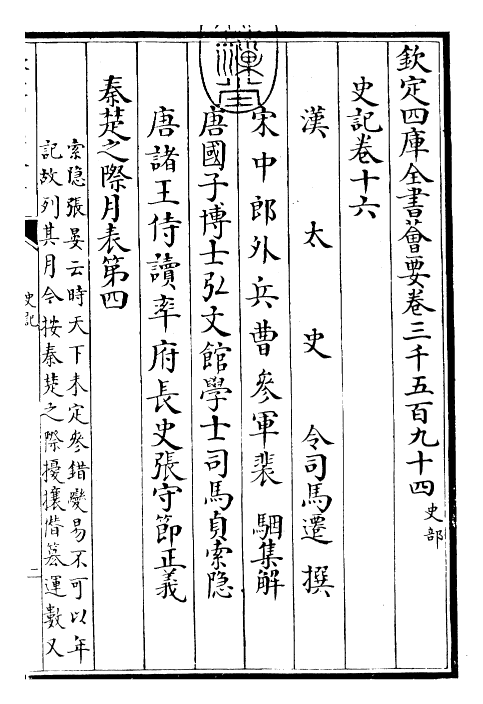 欽定四庫全書薈要卷三千五百九十四 史部
史記卷十六
漢太史令司馬遷撰
宋中郎外兵曹參軍裴駰集解
唐國子博士弘文館學士司馬貞索隱
唐諸王侍讀率府長史張守節正義
秦楚之際月表第四
索隱張晏云時天下未定參錯變易不可以年
記故列其月今按秦楚之際擾攘僭簒運數又
史記